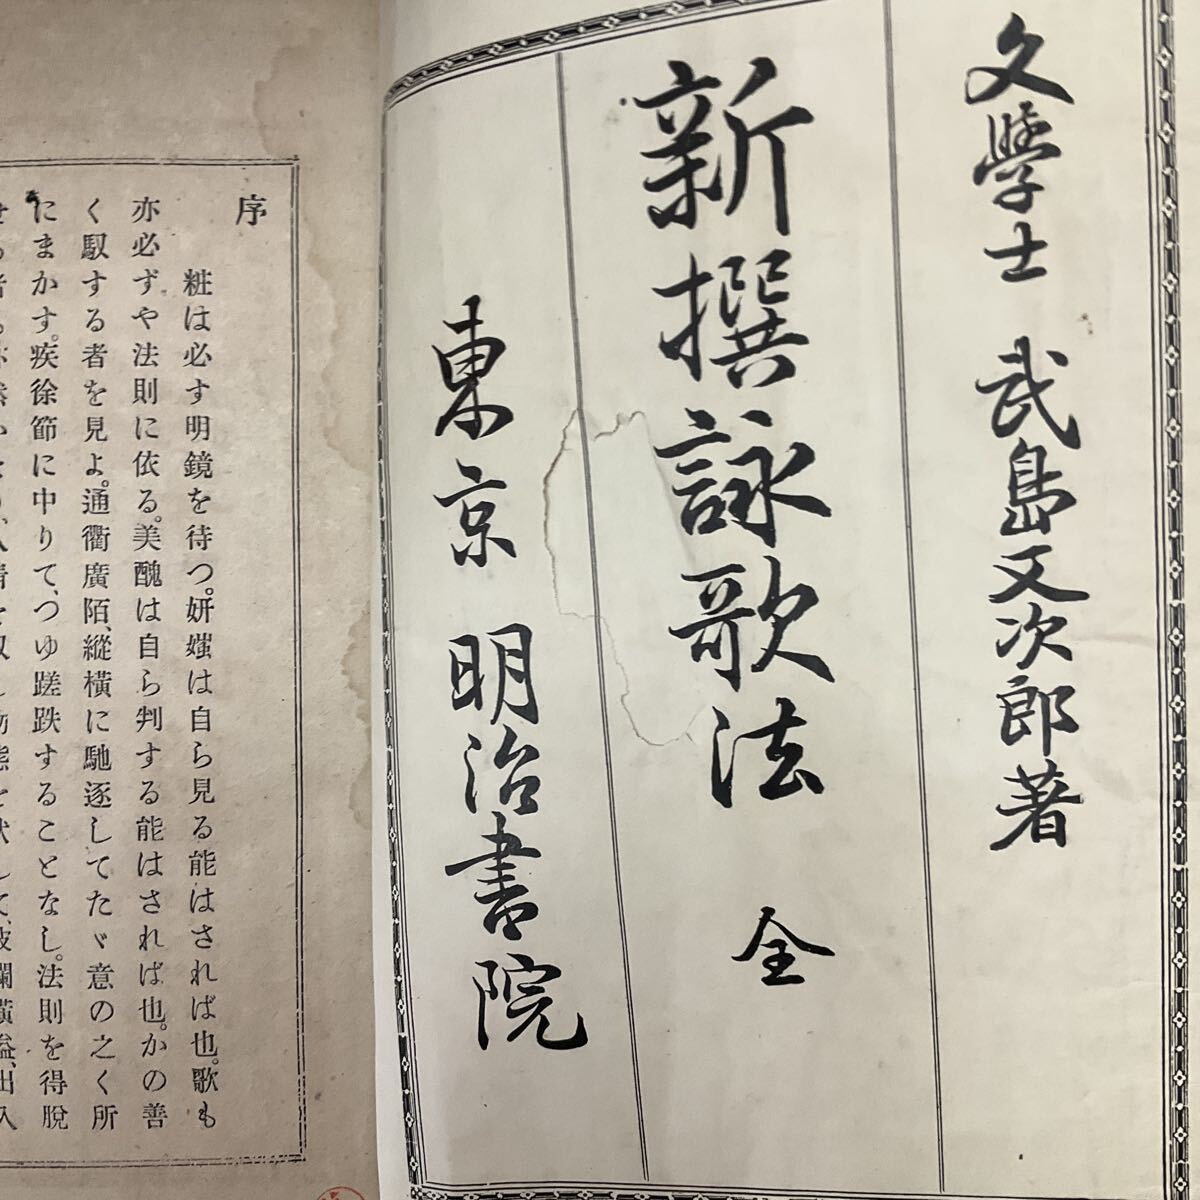 文學士 武島又次郎著
新撰詠歌法 全
東京 明治書院
序
粧は必す明鏡を待つ。妍媸は自ら見る能はされば也。歌も
亦必ずや法則に依る。美醜は自ら判する能はされば也。かの善
く馭する者を見よ。通衢廣陌、縱橫に馳逐してたゞ意の之く所
にまかす。疾徐節に中りて、つゆ蹉跌することなし。法則を得脫